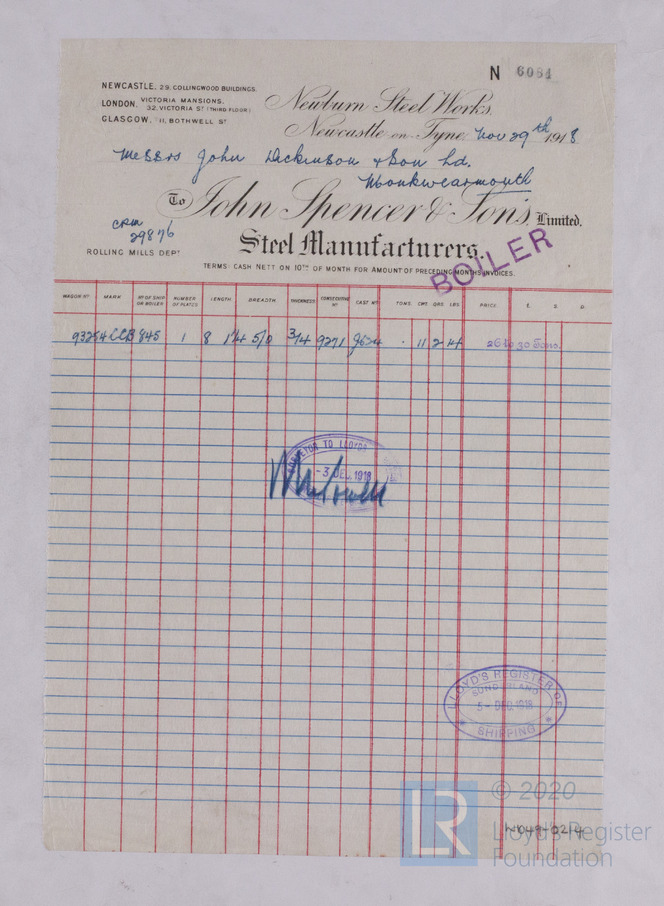 N 6081
NEWCASTLE. 29. COLLINGWOOD BUILDINGS.
LONDON. VICTORIA MANSIONS,
32, VICTORIA ST (THIRD FLOOR)
GLASGOW. 11, BOTHWELL ST
Newburn Steel Works,
Newcastle-on-Tyne, Nov 29th 1918
Messrs John Dickinson & Son Ld.
Monkwearmouth
To John Spencer & Sons, Limited.
Steel Manufacturers.
29876
ROLLING MILLS DEPT
TERMS: CASH NETT ON 10TH OF MONTH FOR AMOUNT OF PRECEDING MONTHS INVOICES.
BOILER
WAGON No. MARK No OF SHIP OR BOILER NUMBER OF PLATES LENGTH BREADTH THICKNESS CONSECUTIVE No CAST No TONS. CWT. QRS. LBS. PRICE. £. S. D.
93254 CCB 845 1 8 1¼ 5/0 3/4 9271 11 2 14 26 to 30 Tons.
SURVEYOR TO LLOYDS
-3 DEC. 1918
LLOYD'S REGISTER OF
SUNDERLAND
5-DEC.1918
SHIPPING
LR © 2020
Lloyd's Register
Foundation